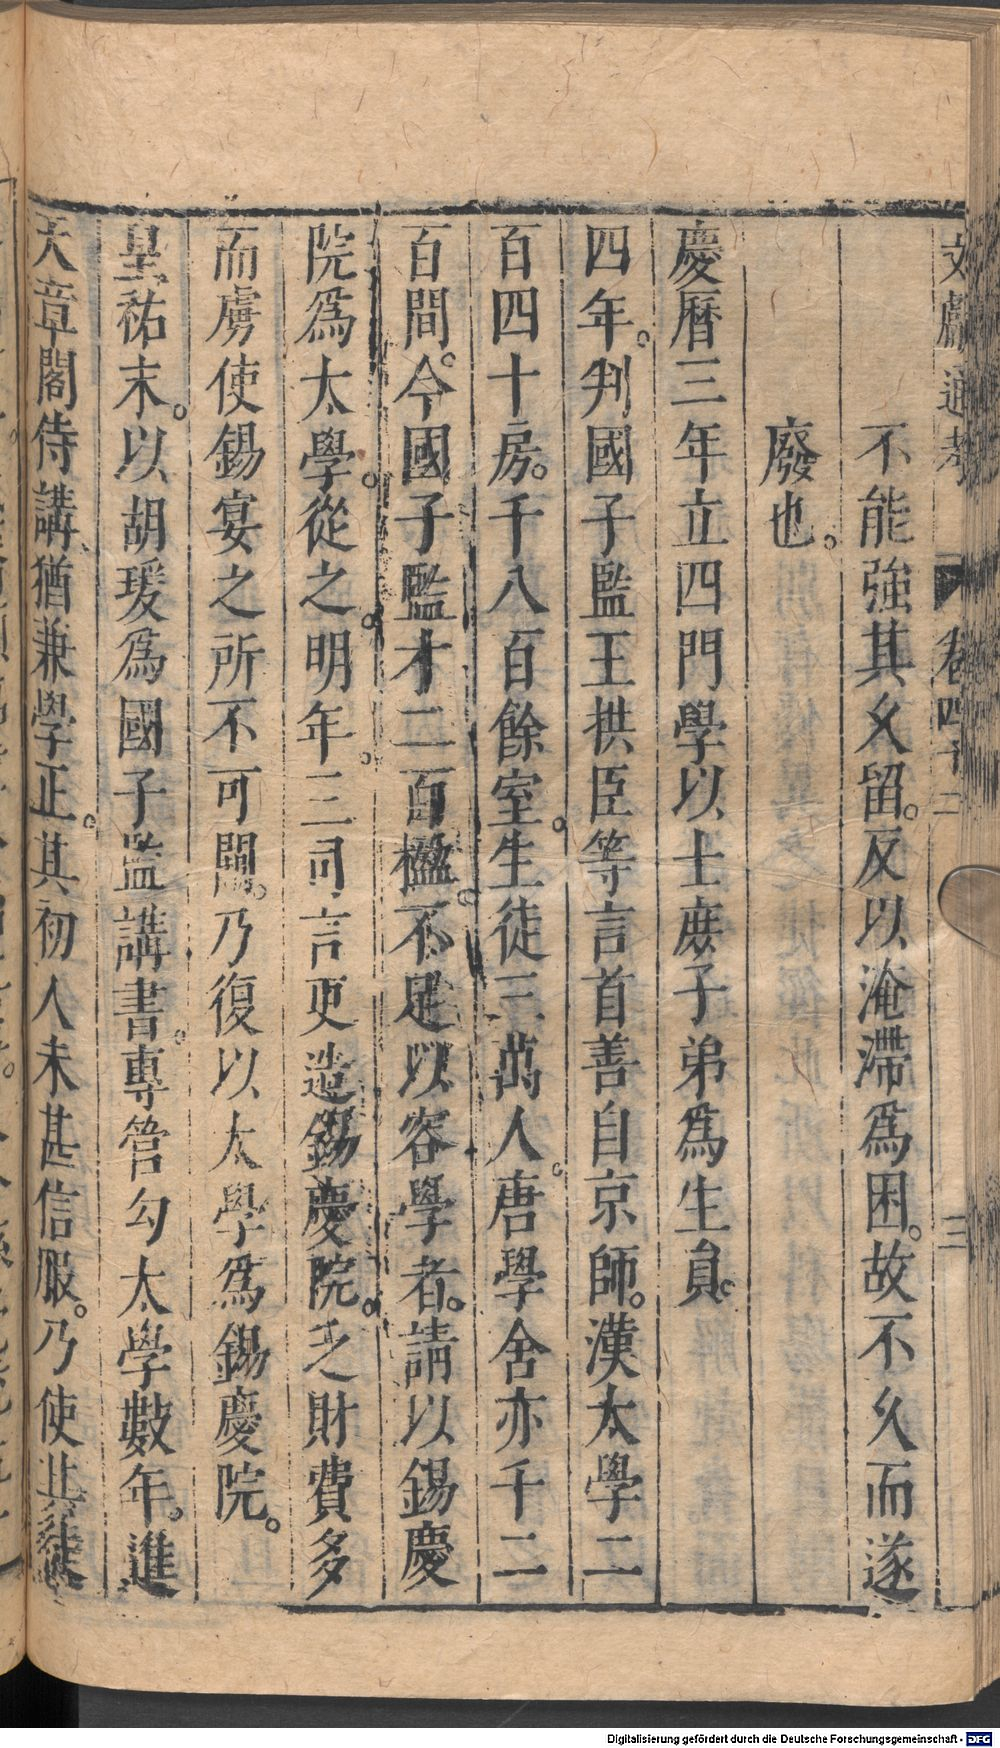 文獻通考 卷四十二 三
不能強其久留。反以淹滯爲困。故不久而遂
廢也。
慶曆三年立四門學以士庶子弟爲生員。
四年。判國子監王拱臣等言首善自京師。漢太學二
百四十房。千八百餘室。生徒三萬人。唐學舍亦千二
百間。今國子監才二百楹。不足以容學者。請以錫慶
院爲太學。從之。明年。三司言更造錫慶院。乏財費多
而虜使錫宴之所不可闕。乃復以太學爲錫慶院。
皇祐末。以胡瑗爲國子監講書。專管勾太學數年。進
天章閣侍講、猶兼學正。其初人未甚信服。乃使其徒
Digitalisierung gefördert durch die Deutsche Forschungsgemeinschaft - DFG